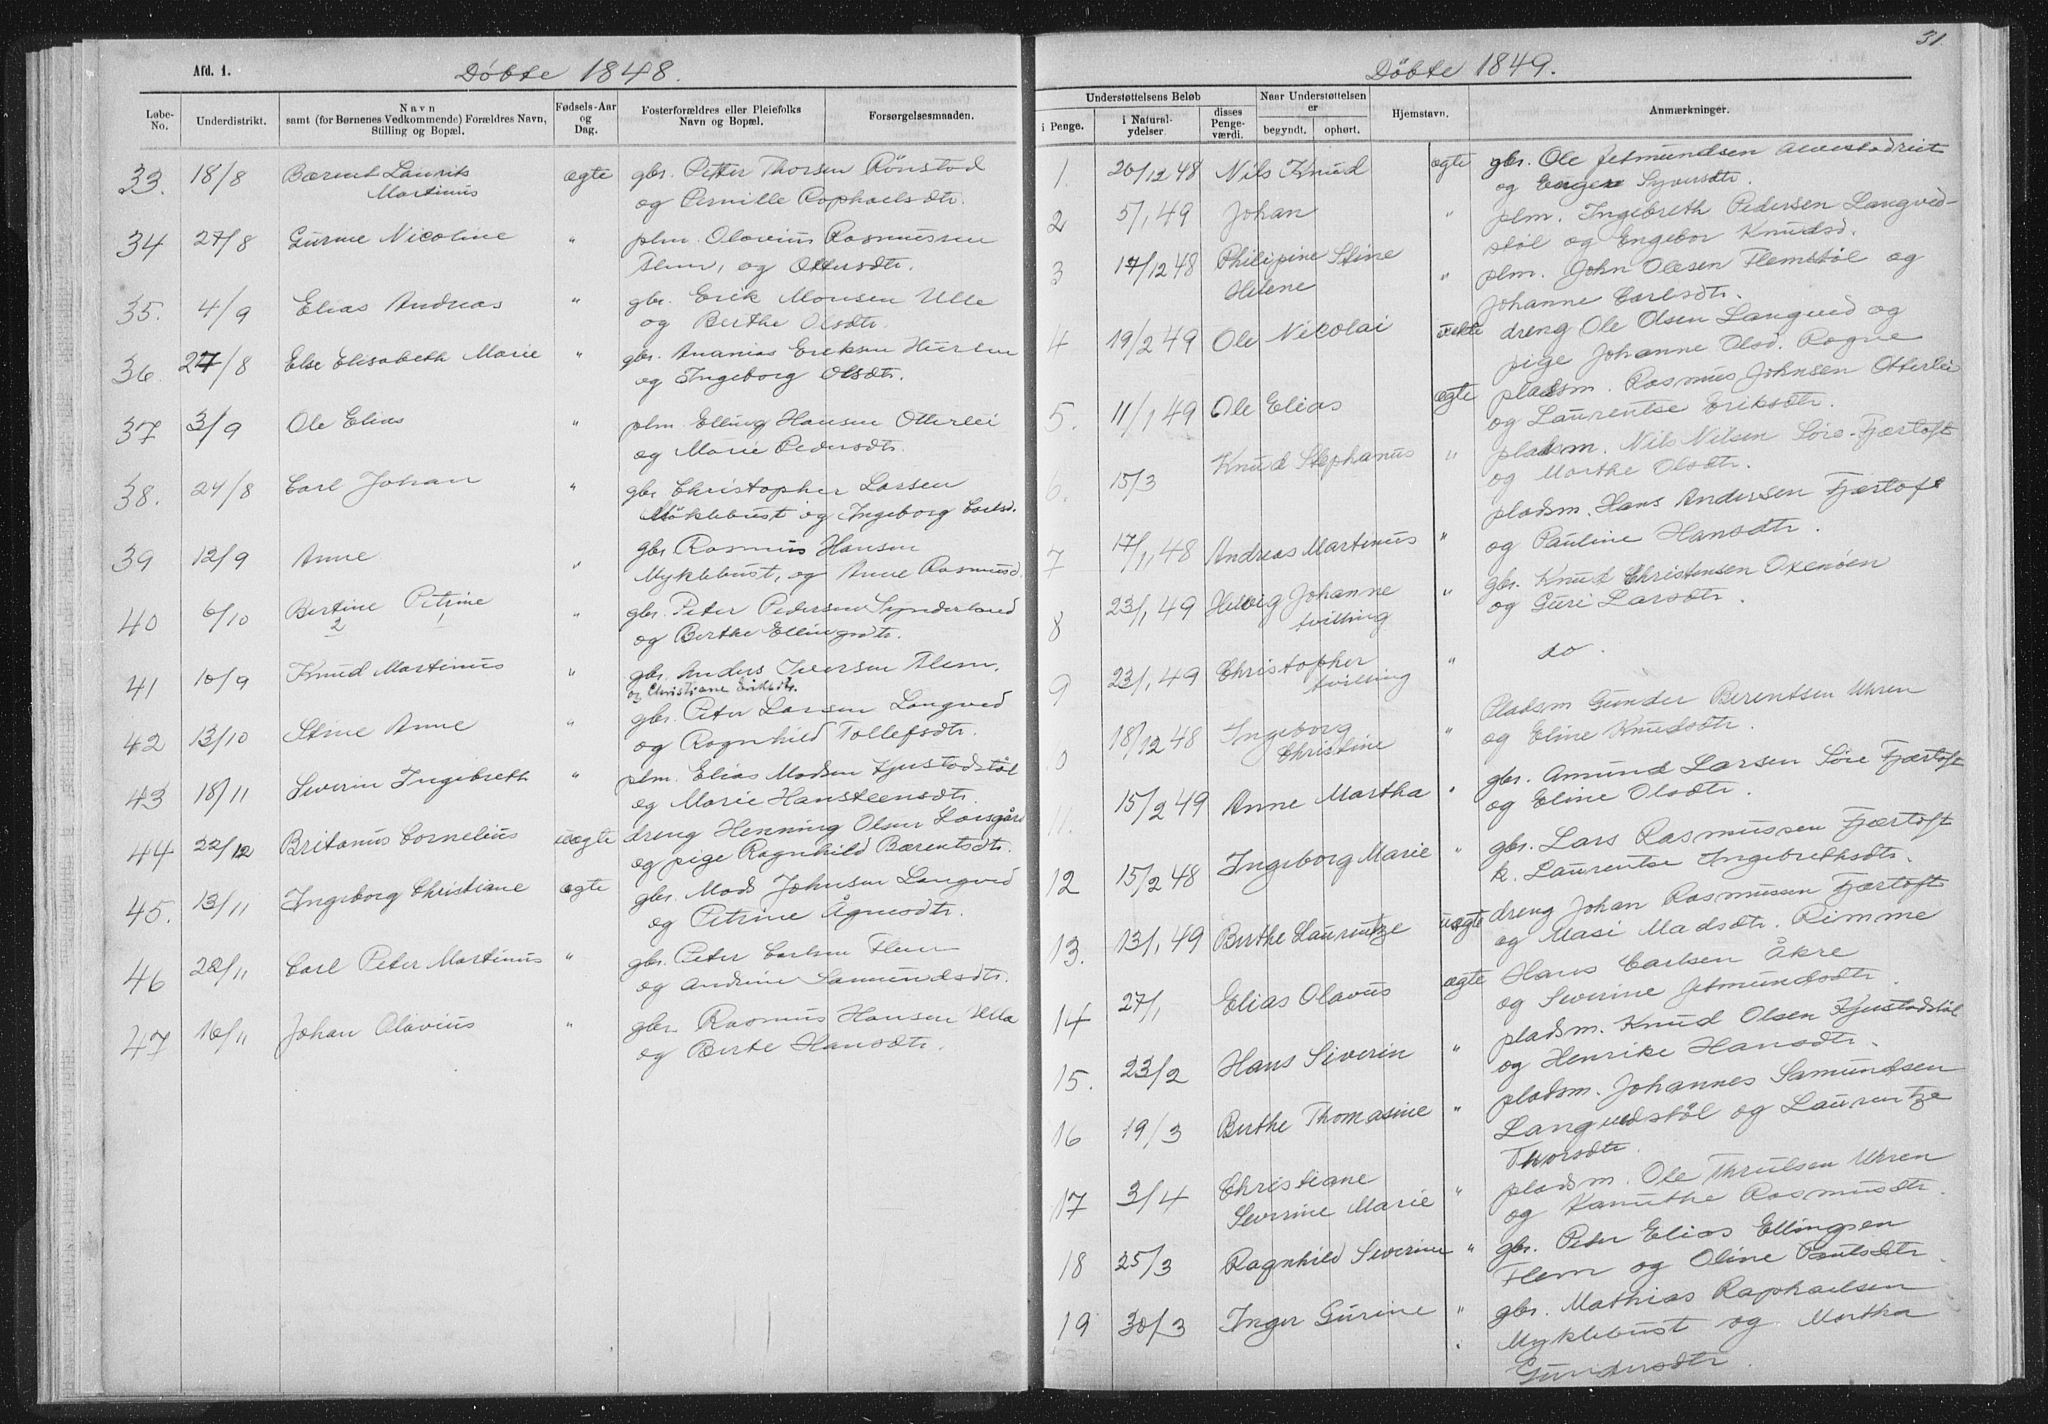 Afd. 1.
Døbte 1848.
Løbe-No.
Underdistrikt.
Navn
samt (for Børnenes Vedkommende) Forældres Navn,
Stilling og Bopæl.
Fødsels-Aar
og
Dag.
Fosterforældres eller Pleiefolks
Navn og Bopæl.
Forsørgelsesmaaden.
33. 18/8 Bærent Laurits ægte gbr. Petter Thorsen Rönstad
Martinus og Pernille Raphaelsdtr.
34 27/8 Gurine Nicoline " plm. Olavius Rasmussen
Flem, og Ottersdtr.
35. 4/9 Elias Andreas " gbr. Erik Monsen Ulle
og Berthe Olsdtr.
36. 27/8 Else Elisabeth Marie " gbr. Ananias Eriksen Hurlen
og Ingeborg Olsdtr.
37 3/9 Ole Elias " plm Elling Hansen Otterlei
og Marie Pedersdtr.
38. 24/8 Carl Johan " gbr Christopher Larsen
Möklebust og Ingeborg Carlsd.
39 12/9 Anne " gbr. Rasmus Hansen
Myklebust, og Anne Rasmusd.
40 6/10 Bertine Petrine " gbr. Peter Pedersen Synderland
2 1 og Berthe Ellingsdtr.
41 10/9 Knud Martinus " gbr. Anders Iversen Flem.
og Christiane Eriksdtr.
42 13/10 Stine Anne " gbr. Peter Larsen Langved
og Ragnhild Tollefsdtr.
43 18/11 Severin Ingebreth " plm. Elias Madsen Kjustadstöl
og Marie Hansteensdtr.
44 22/12 Britanus Cornelius uægte dreng Henning Olsen Horsgård
og pige Ragnhild Bærentsdtr.
45. 13/11 Ingeborg Christiane ægte gbr. Mads Johnsen Langved
og Petrine Ågmodtr.
46 22/11 Carl Peter Martinus " gbr. Peter Carlsen Flem
og Andrine Samundsdtr.
47 16/11 Johan Olavius " gbr. Rasmus Hansen Ulla
og Berte Hansdtr.
31
Døbte 1849.
Understøttelsens Beløb
i Penge.
i Natural-
ydelser.
disses
Penge-
værdi.
Naar Understøttelsen
er
begyndt.
ophørt.
Hjemstavn.
Anmærkninger.
1. 20/12 48 Nils Knud ægte gbr. Ole Jetmundsen Alvestadreit
og Engere Syversdtr.
2 5/1 49 Johan " plm. Ingebreth Pedersen Langved-
stöl og Engebor Knudsd.
3 17/12 48 Philipine Stine " plm. John Olesen Flemstöl og
Helene Johanne Carlsdtr.
4 19/2 49 Ole Nicolai uekte dreng Ole Olsen Langved og
pige Johanne Olsd. Rogne
5. 11/1 49 Ole Elias ægte pladsm. Rasmus Johnsen Otterlei
og Laurentse Eriksdtr.
6. 15/3 Knud Stephanus " pladsm. Nils Nilsen Söre-Fjærtoft
og Marthe Olsdtr.
7 17/1 48 Andreas Martinus " pladsm. Hans Andersen Fjærtoft
og Pauline Hansdtr.
8 23/1 49 Helvig Johanne " gbr. Knud Christensen Oxenöen
tvilling og Guri Larsdtr.
9 23/1 49 Christopher " do.
tvilling
0 18/12 48 Ingeborg " Pladsm Gunder Berentsen Uhren
Christine og Eline Knudsdtr.
11. 15/2 49 Anne Martha " gbr. Amund Larsen Söre Fjærtoft
og Eline Olsdtr.
12 15/2 48 Ingeborg Marie " gbr. Lars Rasmussen Fjærtoft
k. Laurentse Ingebrethsdtr.
13. 13/1 49 Berthe Laurentze uægte dreng Johan Rasmussen Fjærtoft
og Masi Madsdtr. Rimme
14 27/1 Elias Olavus ægte Hans Carlsen Åkre
og Severine Jetmundsdtr.
15. 23/2 Hans Siverin " pladsm. Knud Olsen Kjustadstöl
og Henrike Hansdtr.
16 19/3 Berthe Thomasine " pladsm. Johannes Samundsen
Langvedstöl og Laurentze
Thorsdtr.
17 3/4 Christiane " pladsm. Ole Thrulsen Uhren
Severine Marie og Kanuthe Rasmusdtr.
18 25/3 Ragnhild Severine " gbr. Peder Elias Ellingsen
Flem og Oline Paulsdtr.
19 30/3 Inger Gurine " gbr. Mathias Raphaelsen
Myklebust og Martha
Gundersdtr.